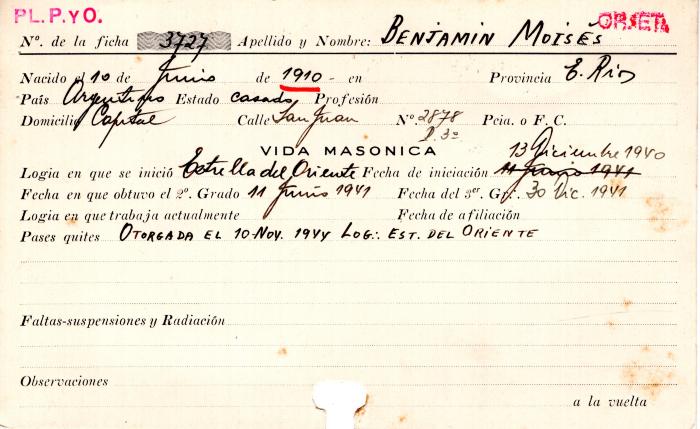 PL. P. y O.
OR. SETA.
Nº. de la ficha 3727 Apellido y Nombre: BENJAMIN MOISÉS
Nacido el 10 de Junio de 1910 - en Provincia E. Rios
País Argentino Estado casado Profesión
Domicilio Capital Calle San Juan Nº. 2878 Pcia. o F. C.
D. 3º
VIDA MASONICA 13 Diciembre 1940
Logia en que se inició Estrella del Oriente Fecha de iniciación 11 Junio 1941
Fecha en que obtuvo el 2º. Grado 11 Junio 1941 Fecha del 3er. Gr. 30 Dic. 1941
Logia en que trabaja actualmente Fecha de afiliación
Pases quites OTORGADA EL 10-NOV. 1944 LOG∴ EST. DEL ORIENTE
Faltas-suspensiones y Radiación
Observaciones
a la vuelta